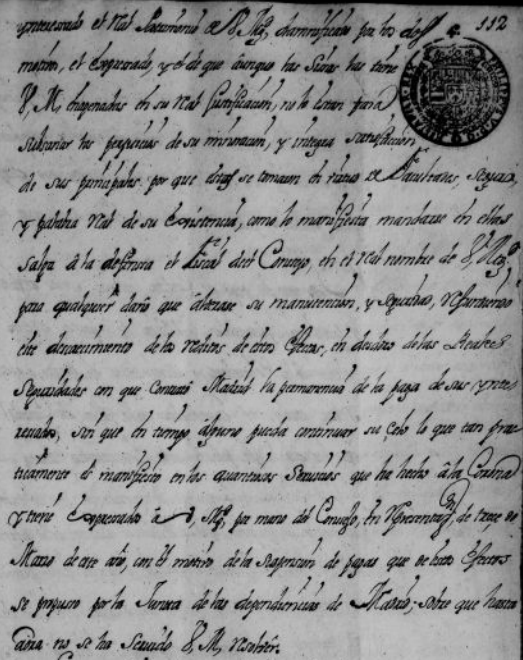 ynteresado el Real Patrimonio de V. Mg.d, damnificado por los dos 112
motivos, el expresado, y el de que aunque las Sisas las tiene
V. M. enagenadas en su Real Justificacion, no lo estan para
subsanar los perjuicios de su minoracion, y integra satisfaccion
de sus principales, por que estos se tomaron en virtud de Facultades,
y palabra Real de su consistencia, como lo manifiesta mandarse en ellas
salga à la defensa el Fiscal del Consejo, en el Real nombre de V. Mag.d
para qualquier daño que alterase su manutencion, y seguridad,
este de los reditos de estos efectos, en de las Reales
Seguridades con que Contrató Madrid la permanencia de la paga de sus ynte-
resados, sin que en tiempo alguno pueda continuar su celo lo que tan prac-
ticamente es manifiesto en los quantiosos Servicios que ha hecho à la Corona
y tiene expresado à V. Mg.d por mano del Consejo, en Representaz.on de trece de
Marzo de este año, con el motivo de la suspension de pagas que de estos efectos
se propuso por la Junta de las dependencias de Madrid; sobre que hasta
aora no se ha servido V. M. resolver.